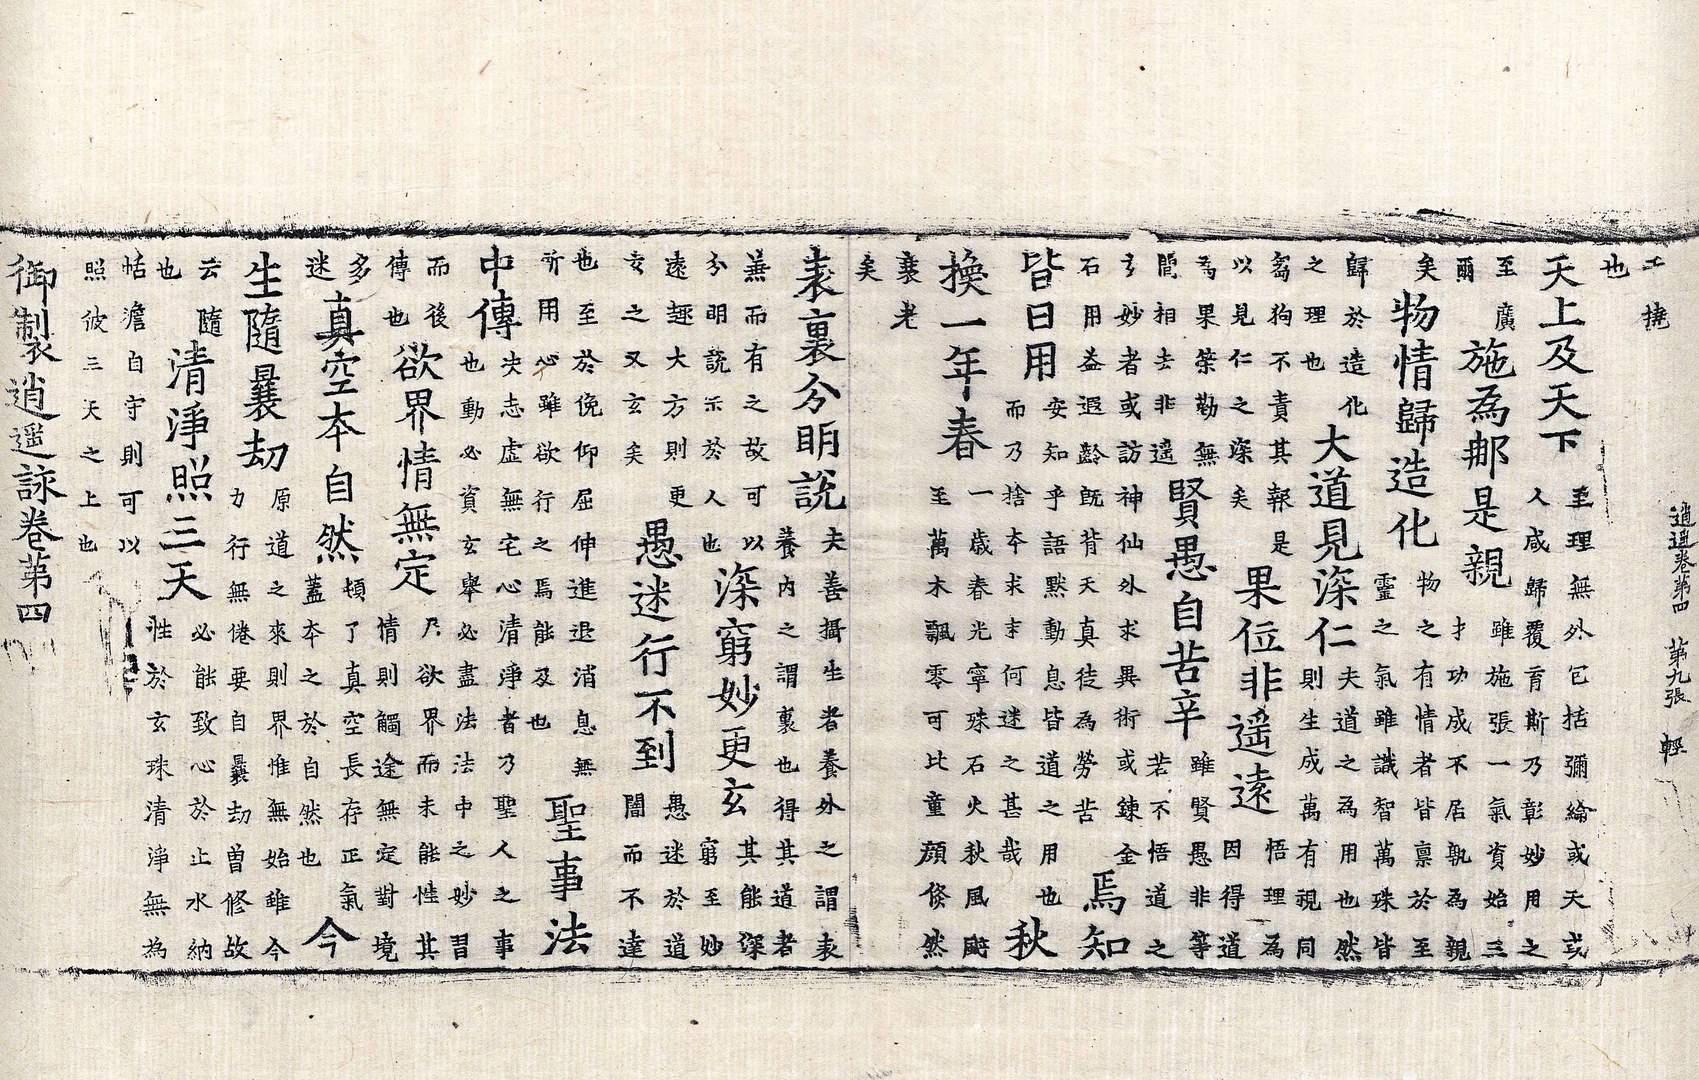 逍遥卷第四 第九張 輕
工撓
也
天上及天下
至理無外包括彌綸或天或
人咸歸覆育斯乃彰妙用之
至廣
爾
施為那是親
雖施張一氣資始三
才功成不居孰為親
矣
物情歸造化
物之有情者皆禀於至
靈之氣雖識智萬殊皆
歸於造化
之理也
大道見深仁
夫道之為用也然
則生成萬有視同
芻狗不責其報是
以見仁之深矣
果位非遥遠
悟理為
因得道
為果榮勤無
間相去非遥
賢愚自苦辛
雖賢愚非等
苦不悟道之
玄妙者或訪神仙外求異術或鍊金
石用益遐齡旣背天真徒為勞苦
焉知
皆日用
安知乎語默動息皆道之用也
而乃捨本求末何迷之甚哉
秋
換一年春
一歲春光寧殊石火秋風飋
至萬木飄零可比童顔倏然
衰老
矣
表裏分明說
夫善攝生者養外之謂表
養內之謂裏也得其道者
善而有之故可以
分明說示於人也
深窮妙更玄
其能深
窮至妙
遠趣大方則更
玄之又玄矣
愚迷行不到
愚迷於道
闇而不達
也至於俛仰屈伸進退消息無
所用心雖欲行之焉能及也
聖事法
中傳
夫志虛無宅心清淨者乃聖人之事
也動必資玄舉必盡法法中之妙習
而後
傳也
欲界情無定
凡欲界而未能性其
情則觸途無定對境
多
迷
真空本自然
頓了真空長存正氣
蓋本之於自然也
今
生隨曩劫
原道之來則界惟無始雖今
力行無倦要自曩劫曽修故
云隨
也
清淨照三天
必能致心於止水納
性於玄珠清淨無為
恬澹自守則可以
照彼三天之上也
御製逍遥詠卷第四